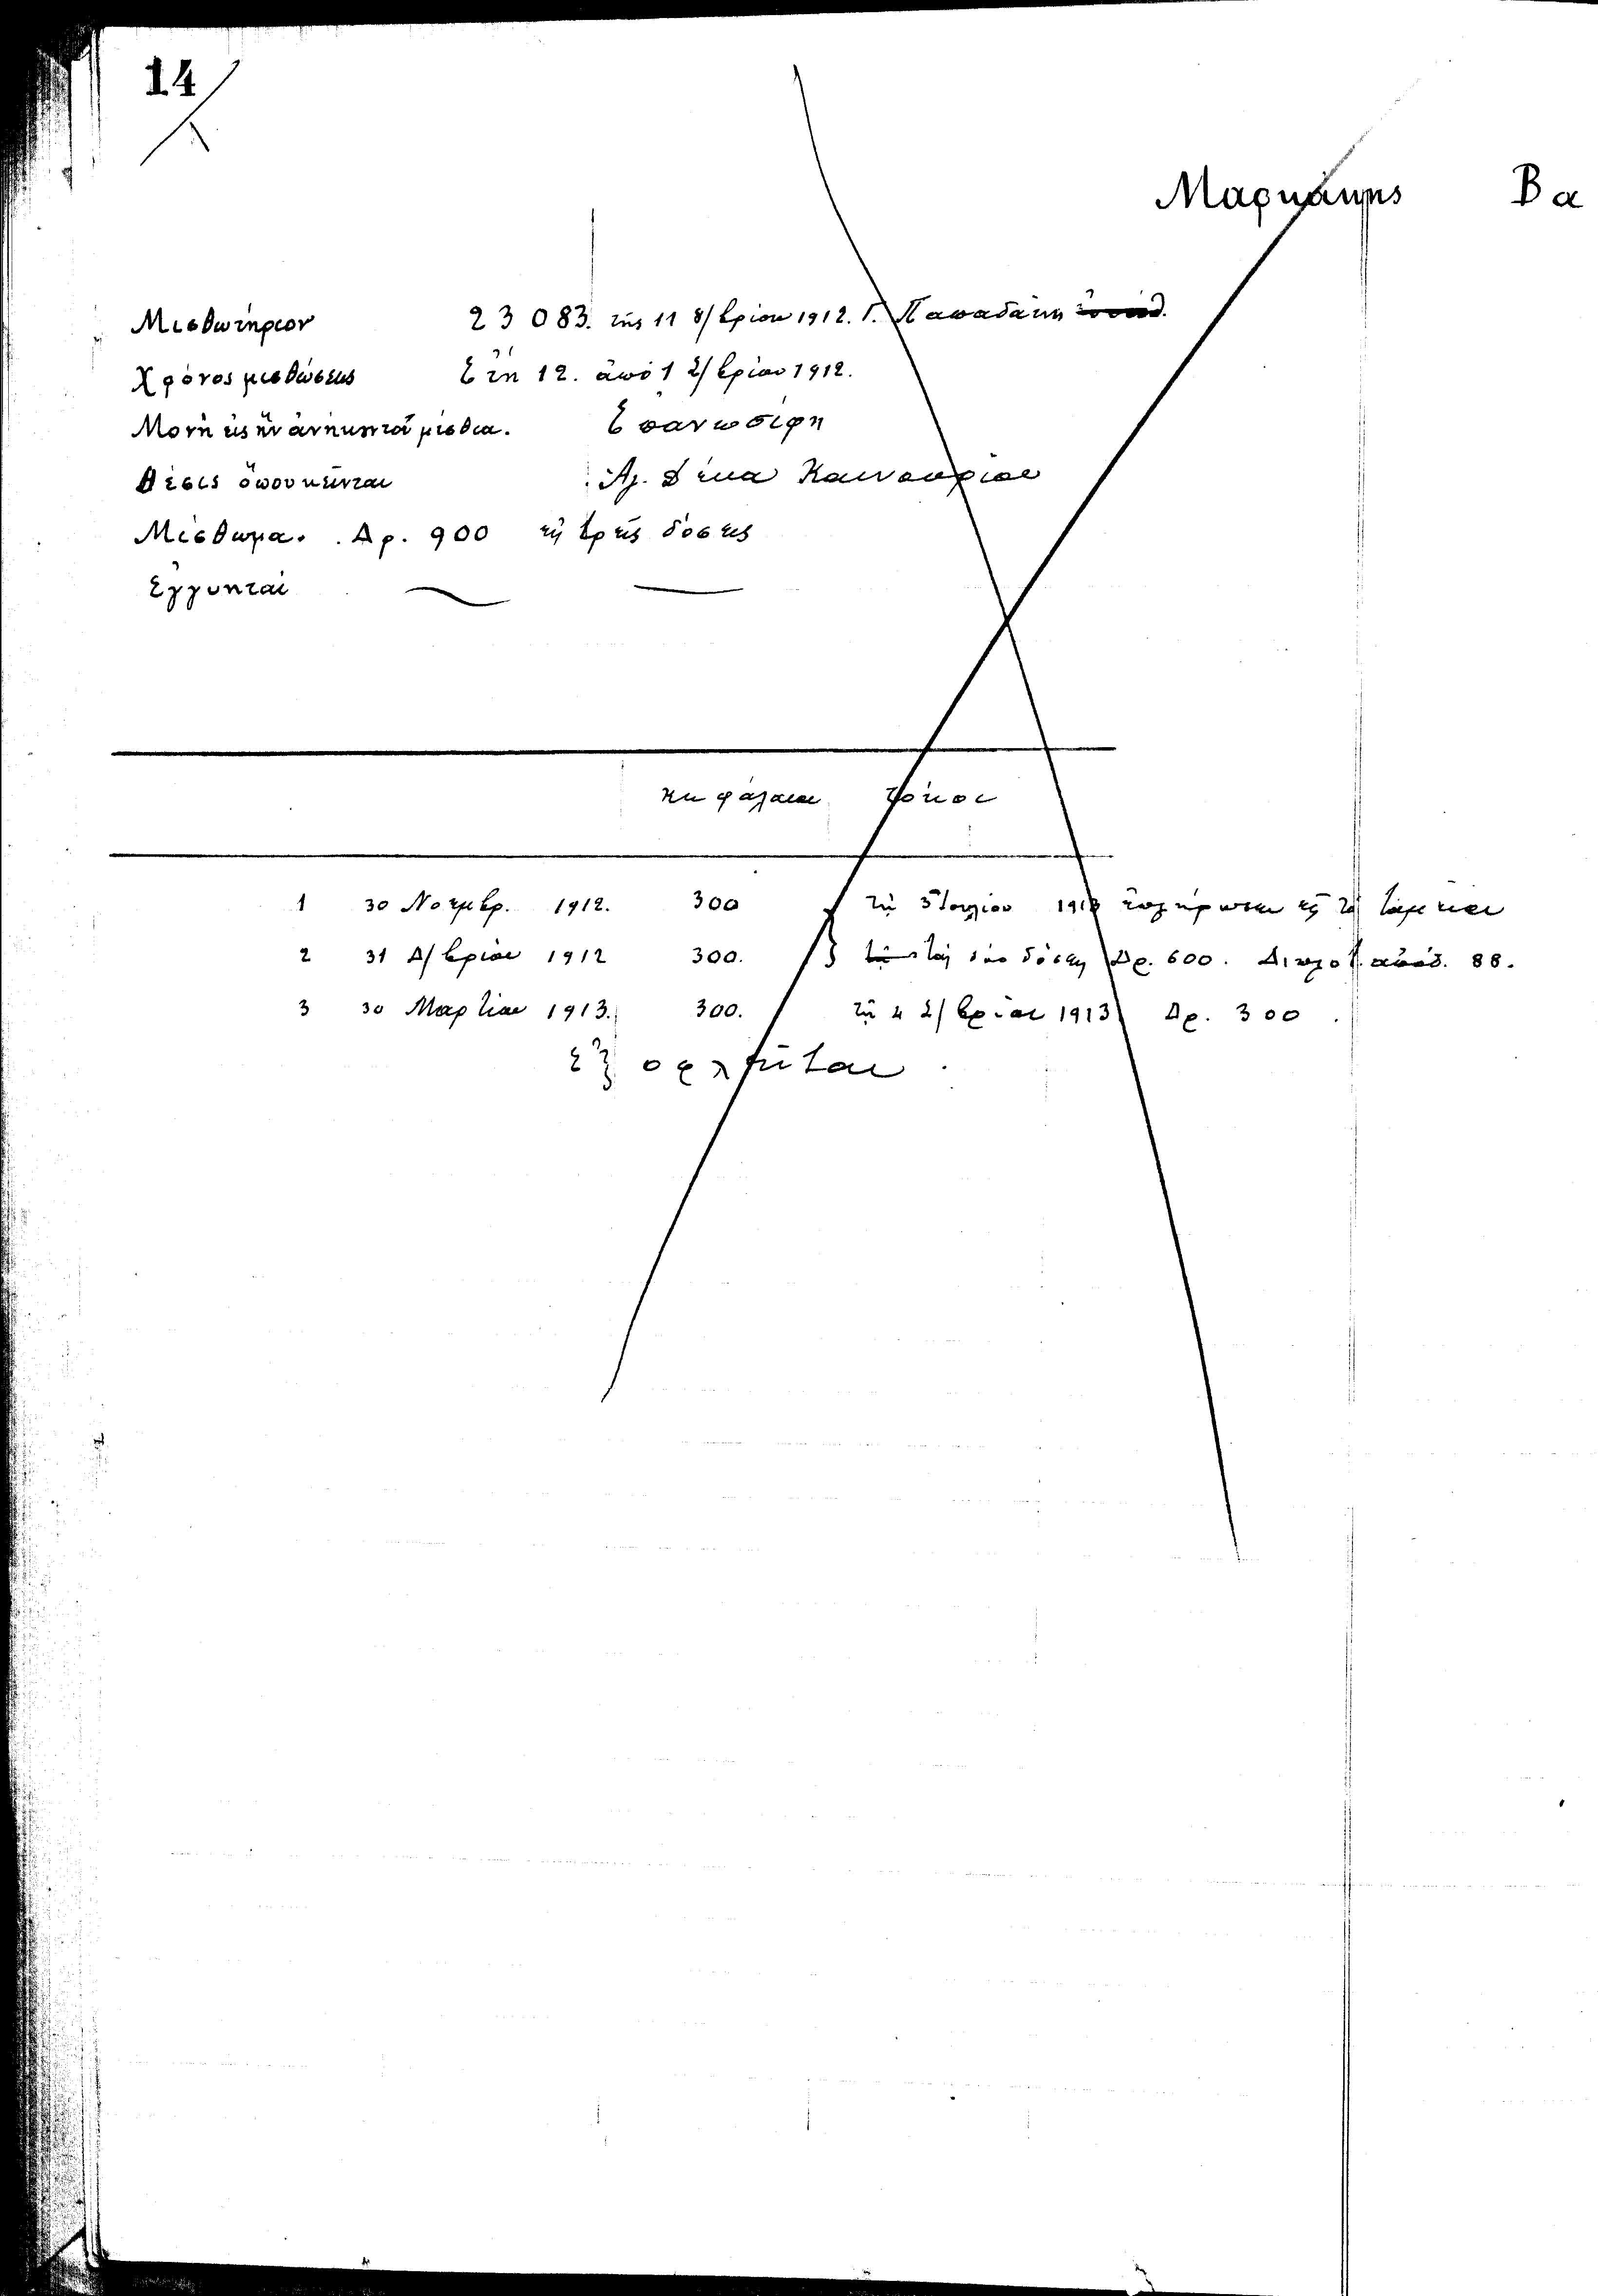 14
Μαρκάκης Βα
Μισθωτήριον 23083. τῆς 11 8/βρίου 1912. Γ. Παπαδάκη
Χρόνος μισθώσεως Ἔτη 12. ἀπό 1 Σ/βρίου 1912.
Μονὴ εἰς ἣν ἀνήκουσι τά μίσθια. Ἐπανωσίφη
Θέσις ὅπου κεῖνται Ἁγ. Δέκα Καινουρίου
Μίσθωμα. Δρ. 900 εἰς τρεῖς δόσεις
Ἐγγυηταί
κεφάλαιον τόκοι
1 30 Νοεμβρ. 1912. 300 τῇ 5 Ἰουλίου 1913 ἐπλήρωσεν εἰς τό ταμεῖον
2 31 Δ/βρίου 1912 300. τάς δύο δόσεις Δρ. 600. Διπλότ. ἀπόδ. 88.
3 30 Μαρτίου 1913. 300. τῇ 4 Σ/βρίου 1913 Δρ. 300.
ἐξοφλεῖται.